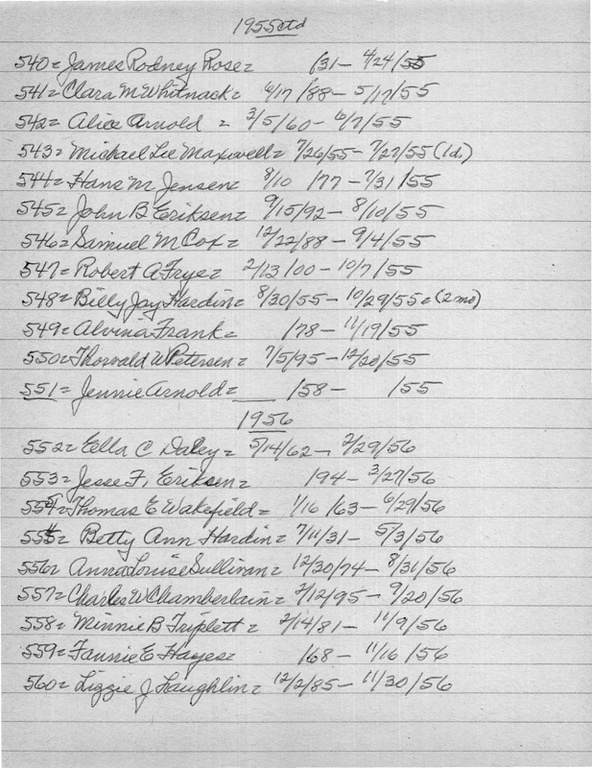 1955 ctd
540= James Rodney Rose= /31- 4/24/55
541= Clara M Whitnack= 6/17/88- 5/17/55
542= Alice Arnold = 3/5/60- 6/7/55
543= Michael Lee Maxwell= 7/26/55- 7/27/55 (1d.)
544= Hans M Jensen= 8/10/77- 7/31/55
545= John B Eriksen= 9/15/92- 8/10/55
546= Samuel M Cox= 12/22/88- 9/4/55
547= Robert A Frye= 2/13/00- 10/7/55
548= Billy Jay Hardin= 8/30/55- 10/29/55= (2 mo)
549= Alvina Frank= /78- 11/19/55
550= Thorvald W Petersen= 7/5/95- 12/20/55
551= Jennie Arnold= /58- /55
1956
552= Ella C Daley= 5/14/62- 2/29/56
553= Jesse F. Eriksen= 194- 3/27/56
554= Thomas E Wakefield= 1/16/63- 6/29/56
555= Betty Ann Hardin= 7/11/31- 5/3/56
556= Anna Louise Sullivan= 12/30/74- 8/31/56
557= Charles W Chamberlain= 2/12/95- 9/20/56
558= Minnie B Triplett= 2/14/81- 11/9/56
559= Fannie E Hayes= /68- 11/16/56
560= Lizzie J Laughlin= 12/2/85- 11/30/56